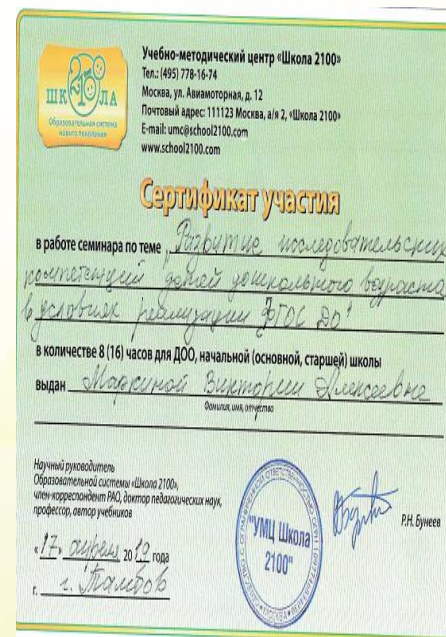 ШКОЛА
2100
Образовательная система
нового поколения
Учебно-методический центр «Школа 2100»
Тел.: (495) 778-16-74
Москва, ул. Авиамоторная, д. 12
Почтовый адрес: 111123 Москва, а/я 2, «Школа 2100»
E-mail: umc@school2100.com
www.school2100.com
Сертификат участия
в работе семинара по теме „Развитие последовательских
компетенций детей дошкольного возраста
в условиях реализации ФГОС ДО"
в количестве 8 (16) часов для ДОО, начальной (основной, старшей) школы
выдан Виктории Алексеевне
Фамилия, имя, отчество
Научный руководитель
Образовательной системы «Школа 2100»,
член-корреспондент РАО, доктор педагогических наук,
профессор, автор учебников
"УМЦ Школа
2100"
Р.Н. Бунеев
«17» апреля 2019 года
г. г. Тамбов